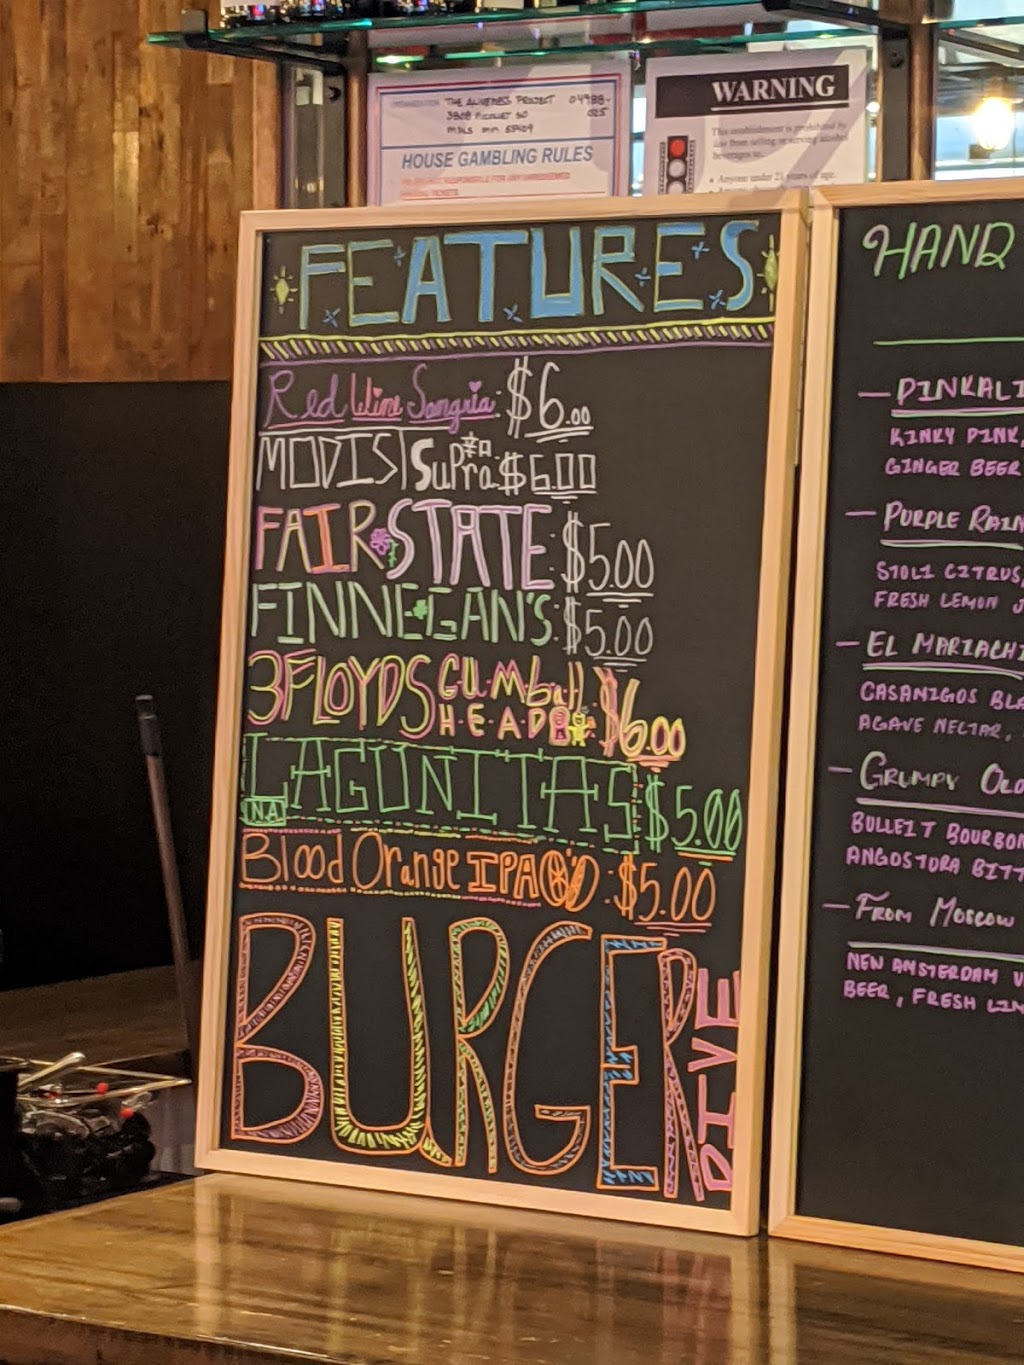 THE ALIVENESS PROJECT 04988-
3808 NICOLLET SO 025
MPLS MN 55409
HOUSE GAMBLING RULES
WARNING
This establishment is prohibited by
law from selling or serving alcohol
beverages to...
Anyone under 21 years of age.
FEATURES
Red Wine Sangria: $6.00
MODIST Supra: $6.00
FAIR STATE: $5.00
FINNEGAN'S: $5.00
3 FLOYDS GUMball
HEAD $6.00
LAGUNITAS: $5.00
N.A.
Blood Orange IPA : $5.00
BURGER
DIVE
HAND
— PINKALI
KINKY PINK,
GINGER BEER
— PURPLE RAIN
STOLI CITRUS,
FRESH LEMON J
— EL MARIACHI
CASAMIGOS BLA
AGAVE NECTAR,
— GRUMPY OLD
BULLEIT BOURBON
ANGOSTURA BITT
— FROM MOSCOW
NEW AMSTERDAM V
BEER, FRESH LIM